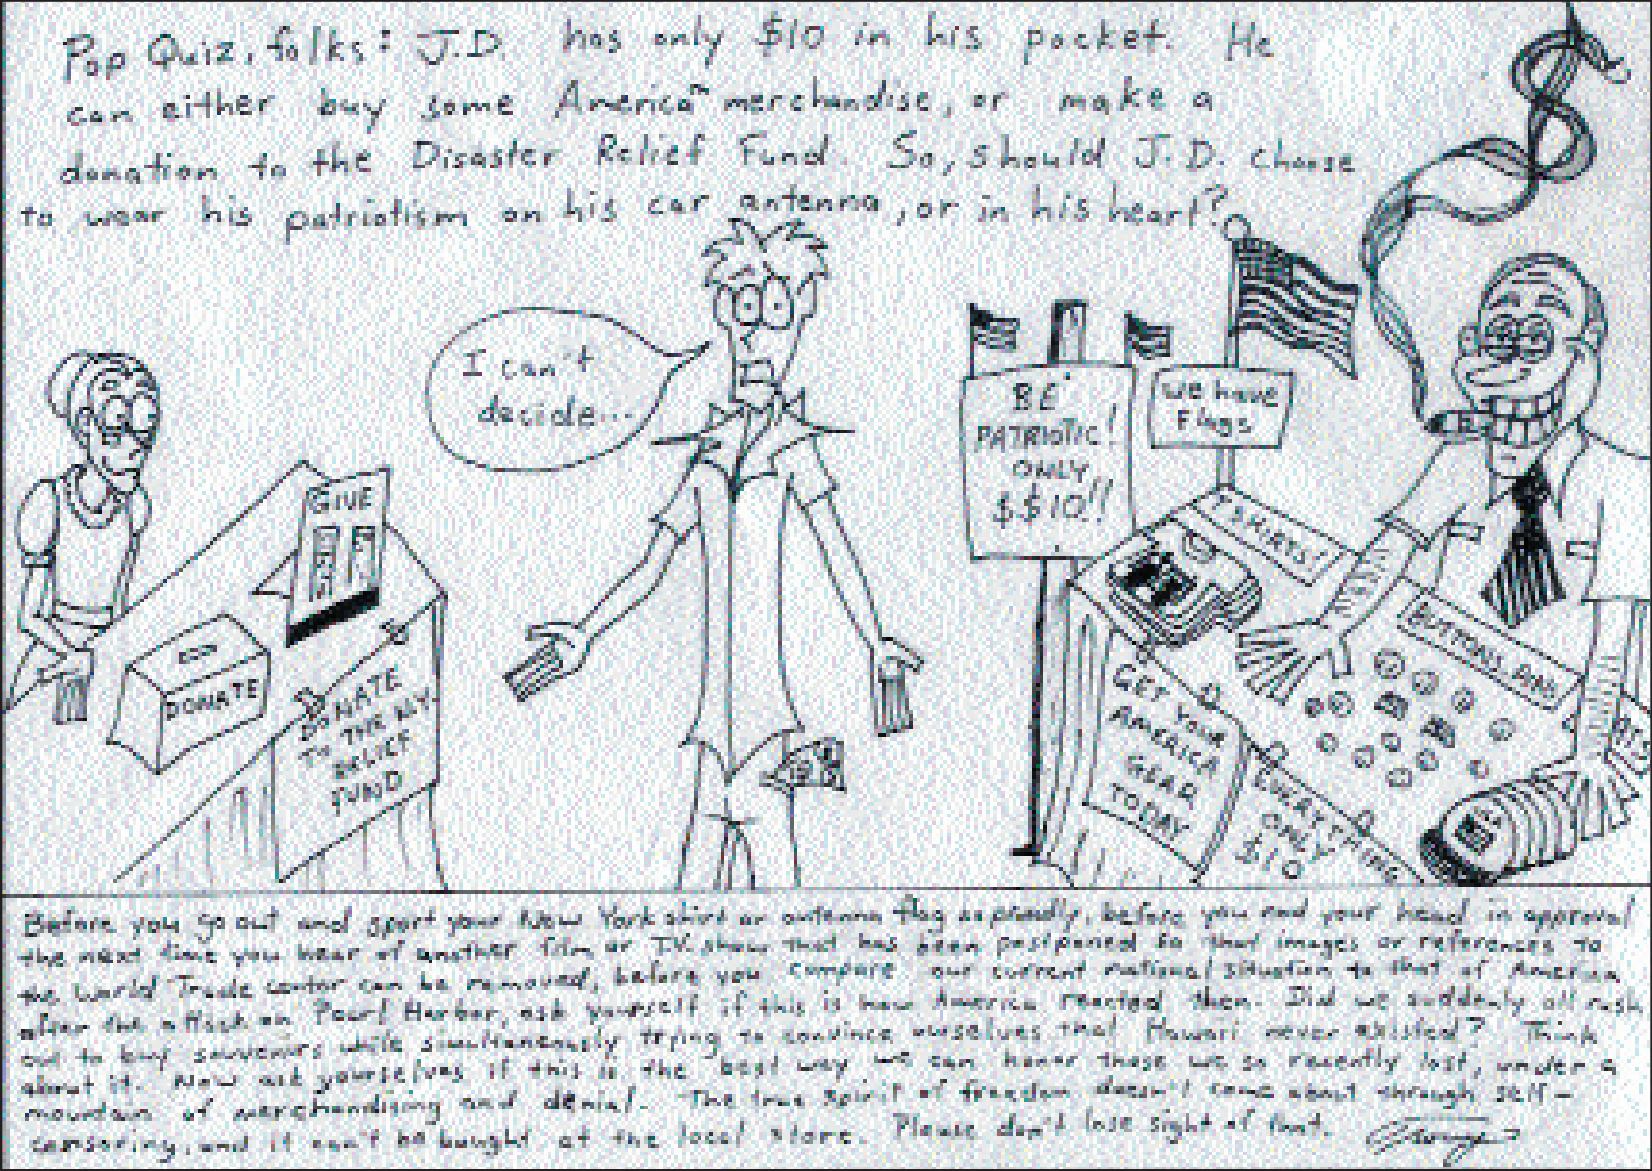 Pop Quiz, folks: J.D. has only $10 in his pocket. He
can either buy some America™ merchandise, or make a
donation to the Disaster Relief Fund. So, should J.D. choose
to wear his patriotism on his car antenna, or in his heart?
I can't
decide...
GIVE
DONATE
DONATE
TO THE N.Y.
RELIEF
FUND
BE
PATRIOTIC!
ONLY
$$10!!
We have
Flags
T-SHIRTS!
BUTTONS
GET YOUR
AMERICA
GEAR
TODAY
EVERYTHING
ONLY
$10
Before you go out and sport your New York shirt or antenna flag so proudly, before you nod your head in approval
the next time you hear of another film or TV show that has been postponed so that images or references to
the World Trade center can be removed, before you compare our current national situation to that of America
after the attack on Pearl Harbor, ask yourself if this is how America reacted then. Did we suddenly all rush
out to buy souvenirs while simultaneously trying to convince ourselves that Hawaii never existed? Think
about it. Now ask yourselves if this is the best way we can honor those we so recently lost, under a
mountain of merchandising and denial. The true spirit of freedom doesn't come about through self-
censoring, and it can't be bought at the local store. Please don't lose sight of that.